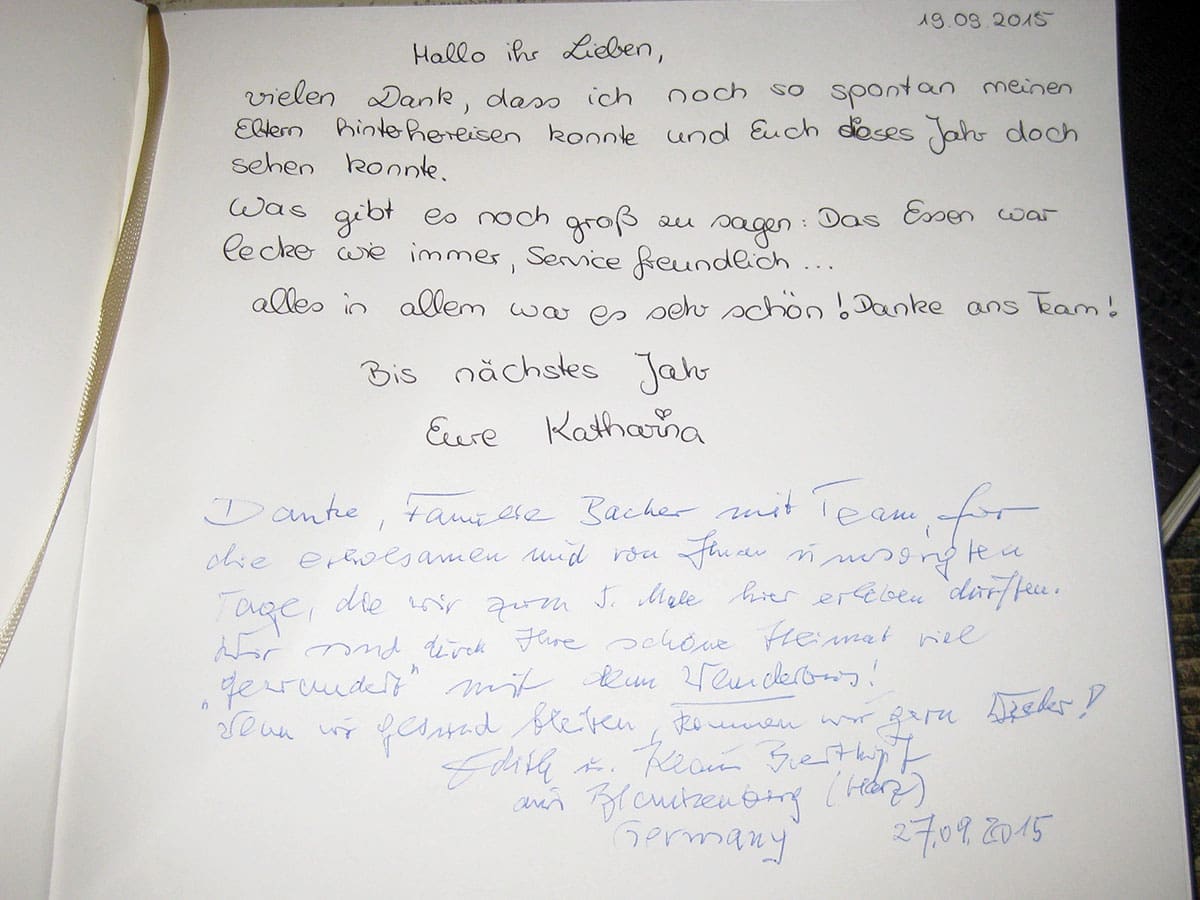 19.09.2015
Hallo ihr Lieben,
vielen Dank, dass ich noch so spontan meinen
Eltern hinterhereisen konnte und Euch dieses Jahr doch
sehen konnte.
Was gibt es noch groß zu sagen: Das Essen war
lecker wie immer, Service freundlich ...
alles in allem war es sehr schön! Danke ans Team!
Bis nächstes Jahr
Eure Katharina
Danke, Familie Bacher mit Team, für
die erholsamen und von Ihnen umsorgten
Tage, die wir zum 5. Male hier erleben dürften.
Wir sind durch Ihre schöne Heimat viel
"gewandert" mit dem Wanderbus!
Wenn wir gesund bleiben, kommen wir gern wieder!
Edith u. Klaus
aus Blankenberg (Harz)
Germany 27.09.2015